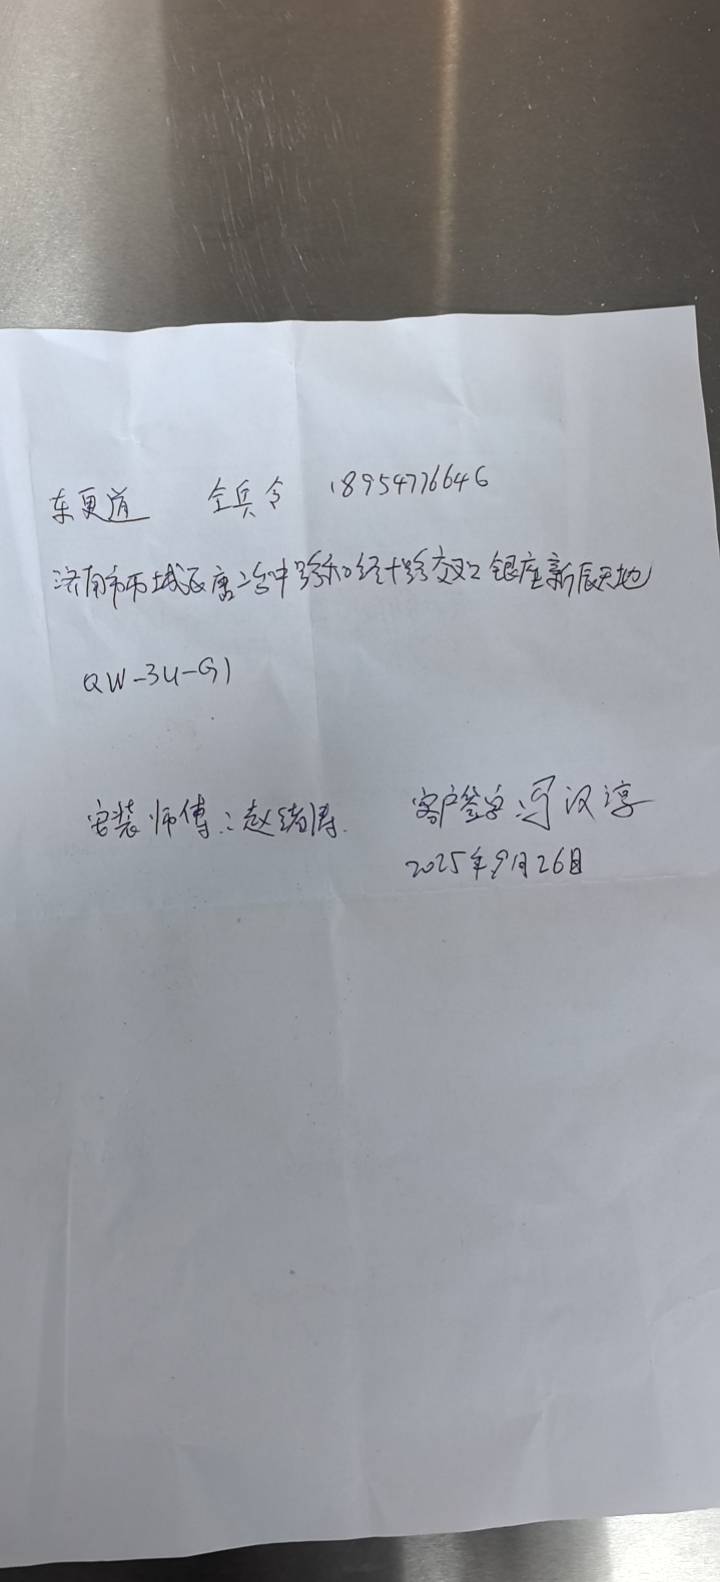 东更道 全兵令 18954776646
济南市历城区唐冶中路和经十路交叉口银座新辰天地
QW-3U-G1
安装师傅：赵绪涛 客户签字：冯汉淳
2025年9月26日